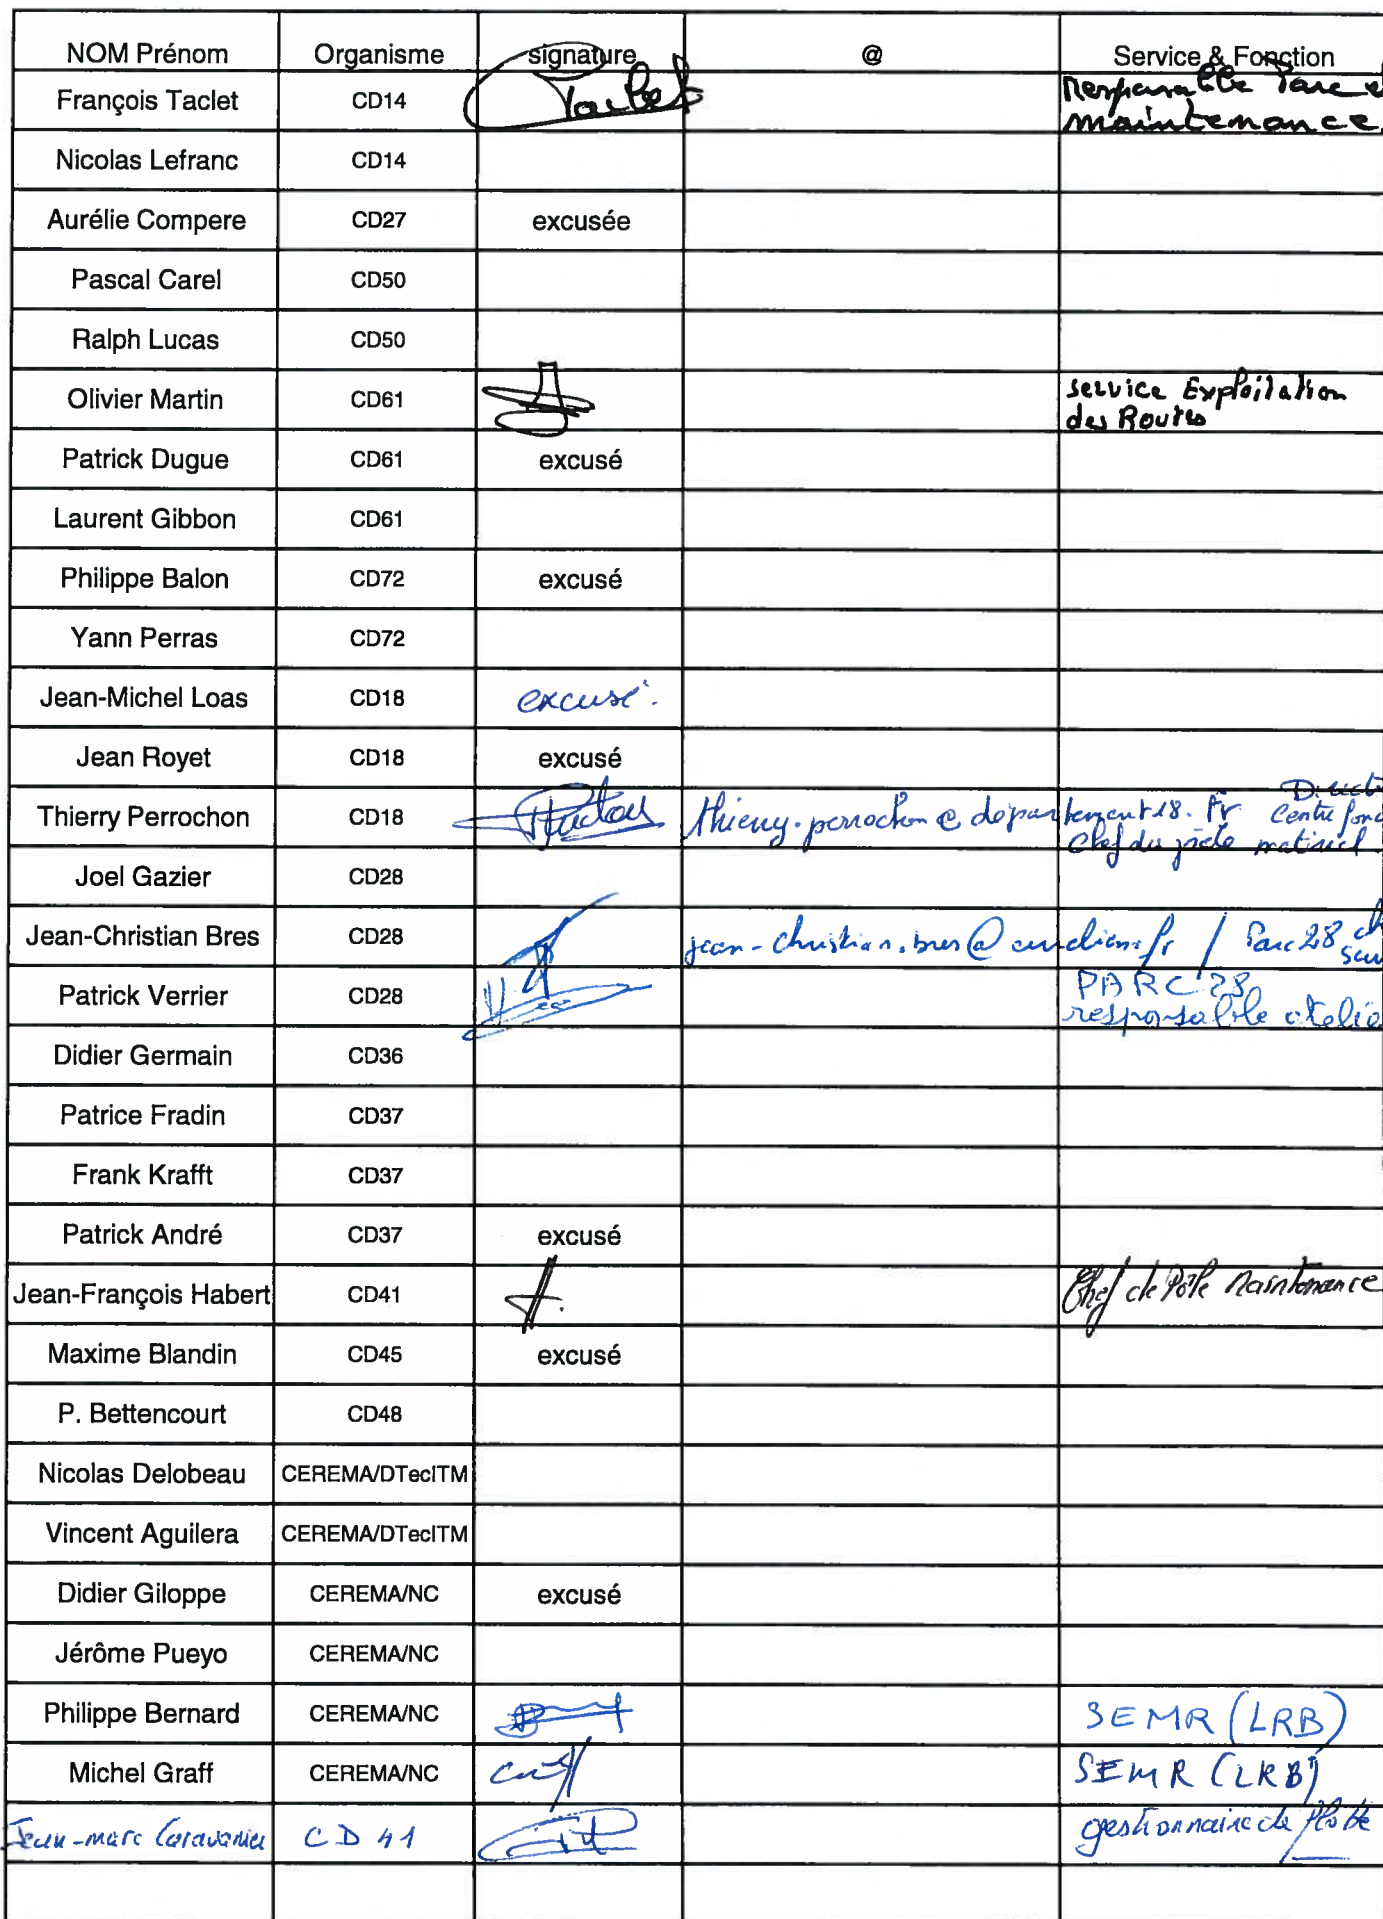 NOM Prénom Organisme signature @ Service & Fonction
François Taclet CD14 Taclet Responsable Parc et
maintenance
Nicolas Lefranc CD14
Aurélie Compere CD27 excusée
Pascal Carel CD50
Ralph Lucas CD50
Olivier Martin CD61 service Exploitation
des Routes
Patrick Dugue CD61 excusé
Laurent Gibbon CD61
Philippe Balon CD72 excusé
Yann Perras CD72
Jean-Michel Loas CD18 excusé.
Jean Royet CD18 excusé
Thierry Perrochon CD18 thierry.perrochon@departement18.fr Centre
Chef du pôle matériel
Joel Gazier CD28
Jean-Christian Bres CD28 jean-christian.bres@eurelien.fr / Parc 28
Patrick Verrier CD28 PARC 28
responsable atelie
Didier Germain CD36
Patrice Fradin CD37
Frank Krafft CD37
Patrick André CD37 excusé
Jean-François Habert CD41 Chef de Pôle Maintenance
Maxime Blandin CD45 excusé
P. Bettencourt CD48
Nicolas Delobeau CEREMA/DTecITM
Vincent Aguilera CEREMA/DTecITM
Didier Giloppe CEREMA/NC excusé
Jérôme Pueyo CEREMA/NC
Philippe Bernard CEREMA/NC SEMR (LRB)
Michel Graff CEREMA/NC SEMR (LRB)
Jean-marc CD 41 gestionnaire de flotte